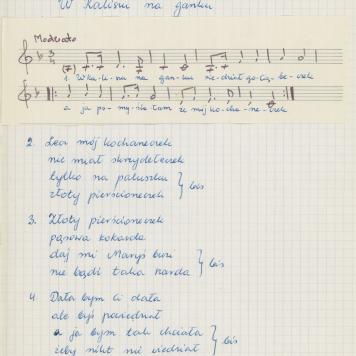 W Kaliniu na ganku
Moderato
1. W Ka-li-niu na gan-ku sie-dział go-łą-be-czek
a ja po-my-śla-łam że mój ko-cha-ne-czek
2. Lecz mój kochaneczek
nie miał skrzydełeczek
tylko na paluszku } bis
złoty pierścioneczek
3. Złoty pierścioneczek
pąsowa kokarda
daj mi Maryś buzi } bis
nie bądź taka harda
4. Dała bym ci dała
ale byś powiedział
a ja bym tak chciała } bis
żeby nikt nie wiedział